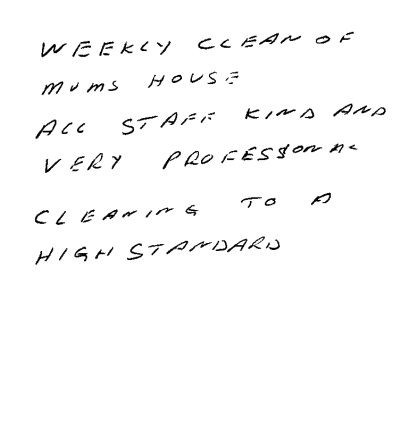 WEEKLY CLEAN OF
MUMS HOUSE
ALL STAFF KIND AND
VERY PROFESSIONAL
CLEANING TO A
HIGH STANDARD